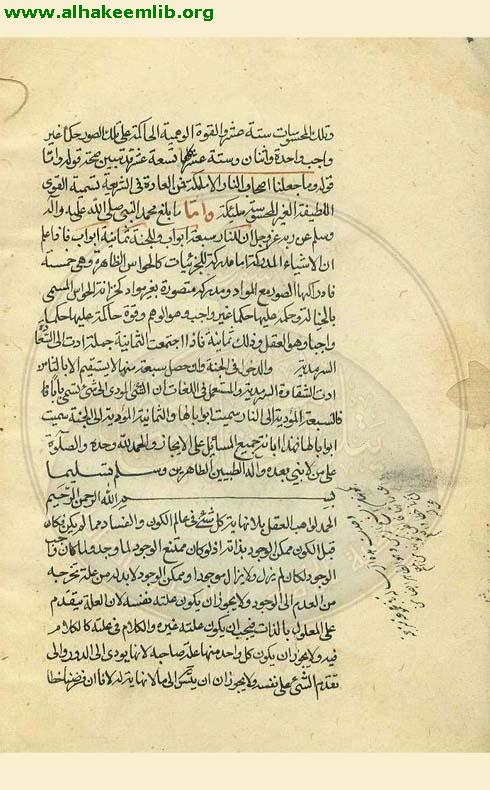 www.alhakeemlib.org
وتلك المحسوسات ستة عشر والقوة الوهمية الحاكمة على تلك الصور حكما غير
واجب واحدة واثنان وستة عشر تسعة عشر فقد تبين صحة قوله واما
قوله وما جعلنا اصحاب النار الا ملئكة فمن العادة فى الشريعة تسمية القوى
اللطيفة الغير المحسوسة ملئكة واما ما بلغ محمد النبى صلى الله عليه وآله
وسلم عن ربه عز وجل ان للنار سبعة ابواب وللجنة ثمانية ابواب فاذا علم
ان الاشياء المدركة اما مدركة للجزئيات كالحواس الظاهرة وهى خمسة
فادراكها الصور مع المواد ومدركة متصورة بغير مواد كخزانة الحواس المسمى
بالخيال وقوة حاكمة عليها حكما غير واجب وهو الوهم وقوة حاكمة عليها حكما
واجبا وهو العقل وذلك ثمانية فاذا اجتمعت الثمانية جملة ادت الى السعادة
السرمدية والدخول فى الجنة وان حصل سبعة منها لا يستقيم الا بالثامن
ادت الشقاوة السرمدية والمستعمل فى اللغات ان الشئ المؤدى الى شئ يسمى بابا له
فالسبعة المؤدية الى النار سميت ابوابا لها والثمانية المؤدية الى الجنة سميت
ابوابا لها فهذا ابانة جميع المسائل على الايجاز والحمد لله وحده والصلوة
على من لا نبى بعده وآله الطيبين الطاهرين وسلم تسليما
بسم الله الرحمن الرحيم
الحمد لواهب العقل بلا نهاية كل شئ فى عالم الكون والفساد مما لم يكن فكان
قبل الكون ممكن الوجود بذاته اذ لو كان ممتنع الوجود لما وجد ولو كان واجب
الوجود لكان لم يزل ولا يزال موجودا وممكن الوجود لا بد له من علة تخرجه
من العدم الى الوجود ولا يجوز ان يكون علته نفسه لان العلة يتقدم
على المعلول بالذات فيجب ان يكون علته غيره والكلام فى علته كالكلام
فيه ولا يجوز ان يكون كل واحد منهما علة صاحبه لانها يودى الى الدور والى
تقدم الشئ على نفسه ولا يجوز ان يتسلسل الى ما لا نهاية له لانا ان فرضنا خطا